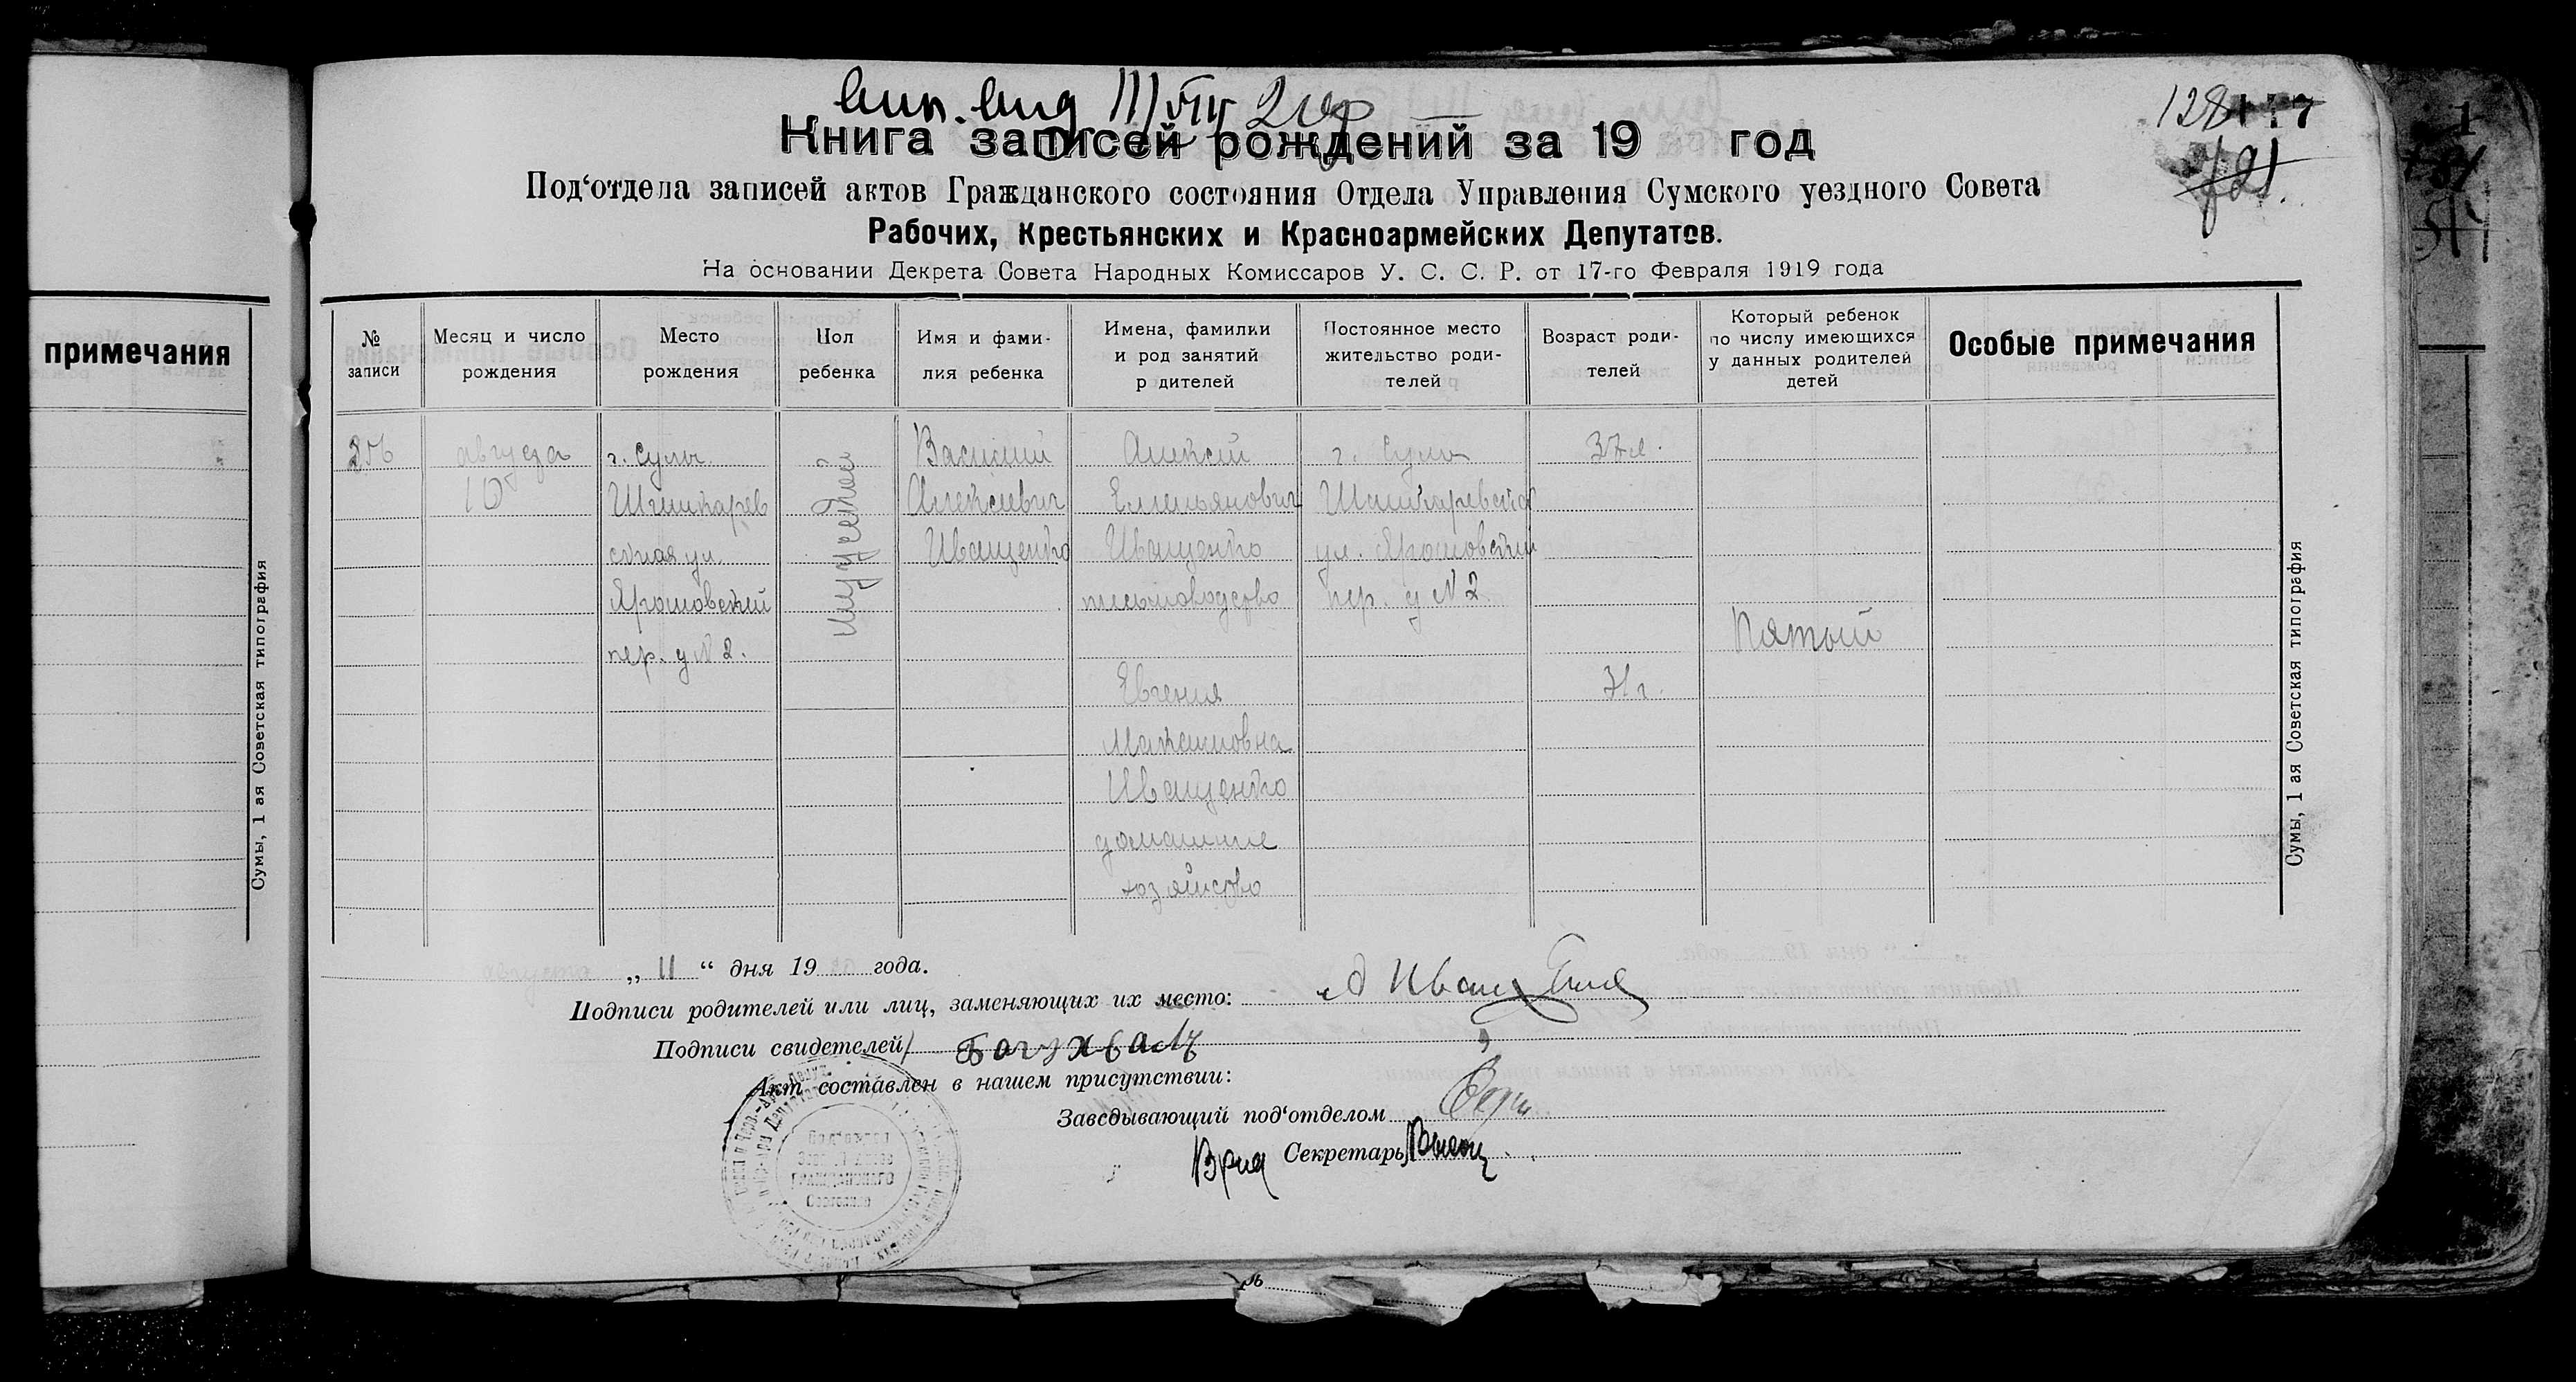 примечания
Сумы, 1 ая Советская типография
128
Книга записей рождений за 19 год
Под‘отдела записей актов Гражданского состояния Отдела Управления Сумского уездного Совета
Рабочих, Крестьянских и Красноармейских Депутатов.
На основании Декрета Совета Народных Комиссаров У. С. С. Р. от 17-го Февраля 1919 года
№ записи
Месяц и число рождения
Место рождения
Пол ребенка
Имя и фами-
лия ребенка
Имена, фамилии
и род занятий
р дителей
Постоянное место
жительство роди-
телей
Возраст роди-
телей
Который ребенок
по числу имеющихся
у данных родителей
детей
Особые примечания
августа
10
г. Сумы
ская ул.
Ярошовский
пер. д № 2.
мужской
Василий
Алексеевич
Иващенко
Алексей
Емельянович
Иващенко
письмоводство
Евгения
Иващенко
домашнее
хозяйство
г. Сумы
ул. Ярошовский
пер. д № 2
37 л.
31 г.
Пятый
„ 11 “ дня 19 года.
Подписи родителей или лиц, заменяющих их место:
Подписи свидетелей
Акт составлен в нашем присутствии:
Заведывающий под‘отделом
Врид Секретарь
Гражданского
Сумы, 1 ая Советская типография